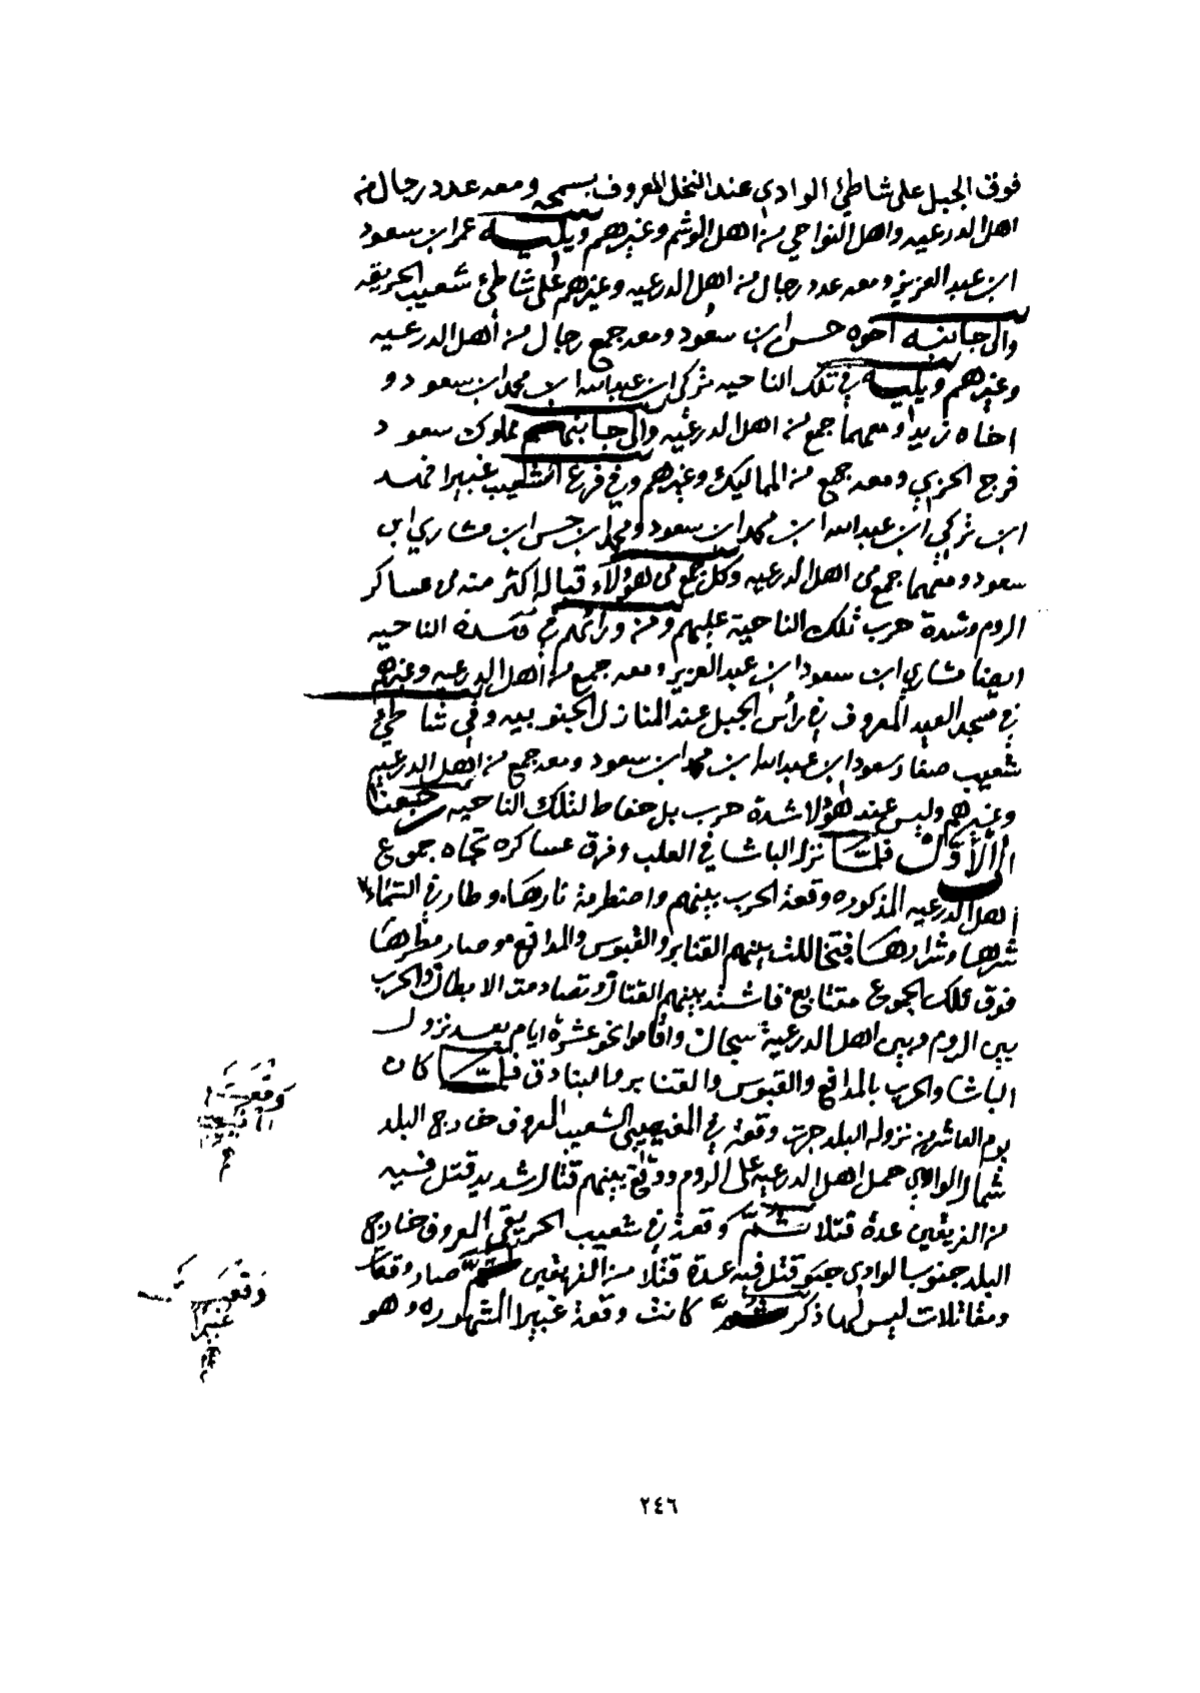 فوق الجبل على شاطئ الوادي عند النخل المعروف بسمحه ومعه عدد رجال من
اهل الدرعيه واهل النواحي من اهل الوشم وغيرهم ويليه عمر ابن سعود
ابن عبد العزيز ومعه عدد رجال من اهل الدرعيه وغيرهم على شاطئ شعيب الحريقه
والى جانبه اخوه حسن ابن سعود ومعه جمع رجال من أهل الدرعيه
وغيرهم ويليه في تلك الناحيه تركي ابن عبدالله ابن محمد ابن سعود و
اخاه زيد ومعهما جمع من اهل الدرعيه والى جانبهم مملوك سعود
فرج الحربي ومعه جمع من المماليك وغيرهم وفي فرع الشعيب غبيرا فهد
ابن تركي ابن عبدالله ابن محمد ابن سعود ومحمد ابن حسن ابن مشاري ابن
سعود ومعهما جمع من اهل الدرعيه وكل جمع من هؤلاء قباله اكثر منه من عساكر
الروم وشدة حرب تلك الناحية عليهم ومن ورائهم في هذه الناحيه
ايضا مشاري ابن سعود ابن عبد العزيز ومعه جمع من أهل الدرعيه وغيرهم
في مسجد العيد المعروف في رأس الجبل عند المنازل الجنوبيه وفي شاطئ
شعيب صفا سعود ابن عبدالله ابن محمد ابن سعود ومعه جمع من اهل الدرعيه
وغيرهم وليس عند هؤلا شدة حرب بل حفاظ لتلك الناحيه رجعنا
الى الأول فلما نزل الباشا في العلب وفرق عساكره تجاه جموع
أهل الدرعيه المذكوره وقعة الحرب بينهم واضطرمة نارها وطار في السماء
شررها وشرارها فتخاللت بينهم القنابر والقبوس والمدافع وصار مطرها
فوق تلك الجموع متتابع فاشتد بينهم القتال وتصادمت الابطال والحرب
بين الروم وبين اهل الدرعية سجال واقاموا نحو عشرة ايام بعد نزول
الباشا والحرب بالمدافع والقبوس والقنابر والبنادق فلما كان
يوم العاشر من نزوله البلد جرت وقعة في المغيصيبي الشعيب المعروف خارج البلد
شمال الوادي حمل اهل الدرعيه على الروم ووقع بينهم قتال شديد قتل فيه
من الفريقين عدة قتلا ثم وقعة في شعيب الحريقي المعروف خارج
البلد جنوب الوادي قتل فيه عدة قتلا من الفريقين ثم صار وقعات
ومقاتلات ليس لها ذكر ثم كانت وقعة غبيرا المشهوره وهو
وقعت
وقعت
غبيرا
٢٤٦